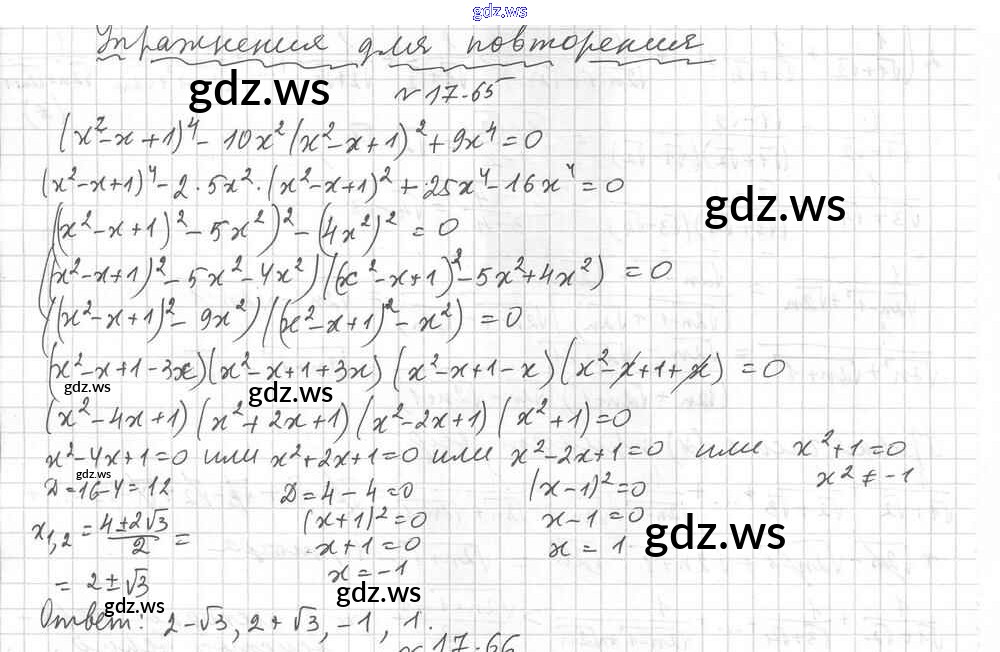 gdz.ws
Упражнения для повторения
gdz.ws
№ 17-65
(x²-x+1)⁴ - 10x² (x²-x+1)² + 9x⁴ = 0
(x²-x+1)⁴ - 2·5x²·(x²-x+1)² + 25x⁴ - 16x⁴ = 0
gdz.ws
((x²-x+1)² - 5x²)² - (4x²)² = 0
((x²-x+1)² - 5x² - 4x²)((x²-x+1)² - 5x² + 4x²) = 0
((x²-x+1)² - 9x²)((x²-x+1)² - x²) = 0
(x²-x+1-3x)(x²-x+1+3x)(x²-x+1-x)(x²-x+1+x) = 0
gdz.ws gdz.ws
(x²-4x+1)(x²+2x+1)(x²-2x+1)(x²+1)=0
x²-4x+1=0 или x²+2x+1=0 или x²-2x+1=0 или x²+1=0
gdz.ws
Д=16-4=12 Д=4-4=0 (x-1)²=0 x²≠-1
x₁,₂ = (4±2√3)/2 = (x+1)²=0 x-1=0
gdz.ws
x+1=0 x=1.
= 2±√3 x=-1
gdz.ws gdz.ws
Ответ: 2-√3, 2+√3, -1, 1.
№ 17-66